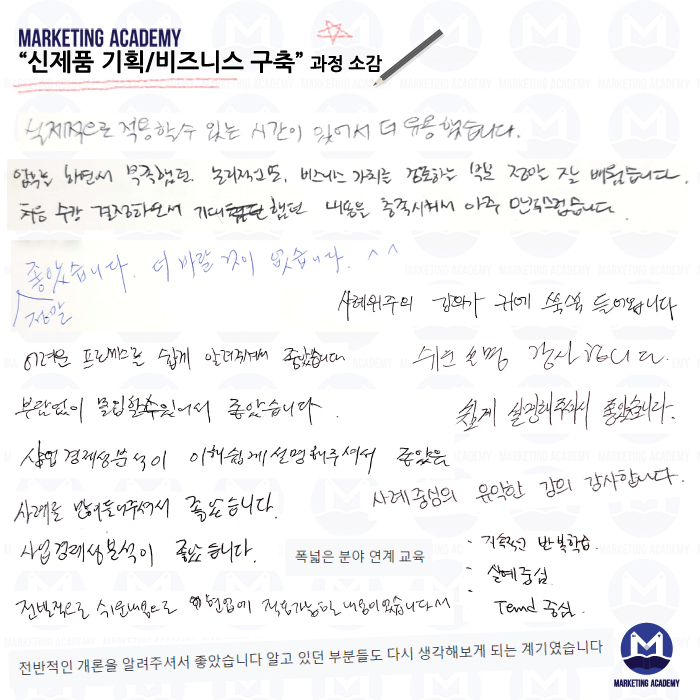 MARKETING ACADEMY
“신제품 기획/비즈니스 구축” 과정 소감
실제적으로 적용할 수 있는 시간이 있어서 더 유용했습니다.
업무를 하면서 부족했던, 논리적인 , 비즈니스 가치를 검토하는 정말 잘 배웠습니다.
처음 수강 결정하면서 기대 했던 내용을 충족시켜서 아주 만족스럽습니다.
좋았습니다. 더 바랄 것이 없습니다. ^^
정말
사례위주의 강의가 귀에 쏙쏙 들어왔습니다
어려운 프로세스를 쉽게 알려주셔서 좋았습니다
쉬운 설명 감사합니다.
부담없이 몰입할 수 있어서 좋았습니다.
쉽게 설명해주셔서 좋았습니다.
사업경제성분석이 이해쉽게 설명해주셔서 좋았음
사례를 많이 들어주셔서 좋았습니다.
사례중심의 유익한 강의 감사합니다.
사업경제성분석이 좋았습니다.
폭넓은 분야 연계 교육
· 지속적인 반복학습.
· 실예중심.
· 중심.
전반적으로 쉬운내용으로 현업에 적용가능한 내용이었습니다
전반적인 개론을 알려주셔서 좋았습니다 알고 있던 부분들도 다시 생각해보게 되는 계기였습니다
MARKETING ACADEMY